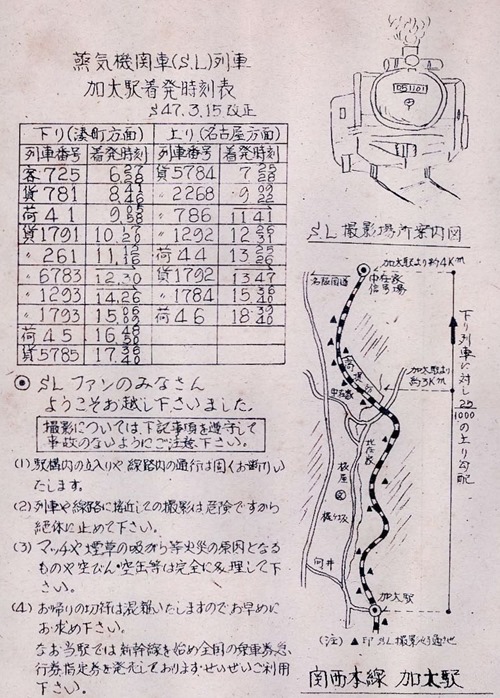 蒸気機関車(S.L)列車
加太駅着発時刻表
S47.3.15改正
下り(湊町方面) 上り(名古屋方面)
列車番号 着発時刻 列車番号 着発時刻
客725 6 貨5784 7
貨781 8 〃2268 9
荷41 9 〃786 11 41
貨1791 10 〃1292 12
〃261 11 荷44 13
〃6783 12.30 貨1792 13 47
〃1293 14.26 〃1784 15
〃1793 15 荷46 18
荷45 16
貨5785 17
◉ SLファンのみなさん
ようこそお越し下さいました。
撮影については、下記事項を遵守して
事故のないようにご注意下さい。
(1) 駅構内の立入りや線路内の通行は固くお断りい
たします。
(2) 列車や線路に接近しての撮影は危険ですから
絶体に止めて下さい。
(3) マッチや煙草の吸がら等火災の原因となる
ものや空びん・空缶等は完全に処理して下
さい。
(4) お帰りの切符は混雑いたしますのでお早めに
お求め下さい。
なお当駅では新幹線を始め全国の乗車券急
行券指定券を発売しております・せいぜいご利用
下さい。
D51101
SL撮影場所案内図
加太駅より約4Km
名阪国道
中在家
信号場
加太駅より
約3Km
中在家
北在家
板屋
向井
加太駅
下り列車に対し
25
1000
の上り勾配
(注) ▲印SL撮影好適地
関西本線 加太駅